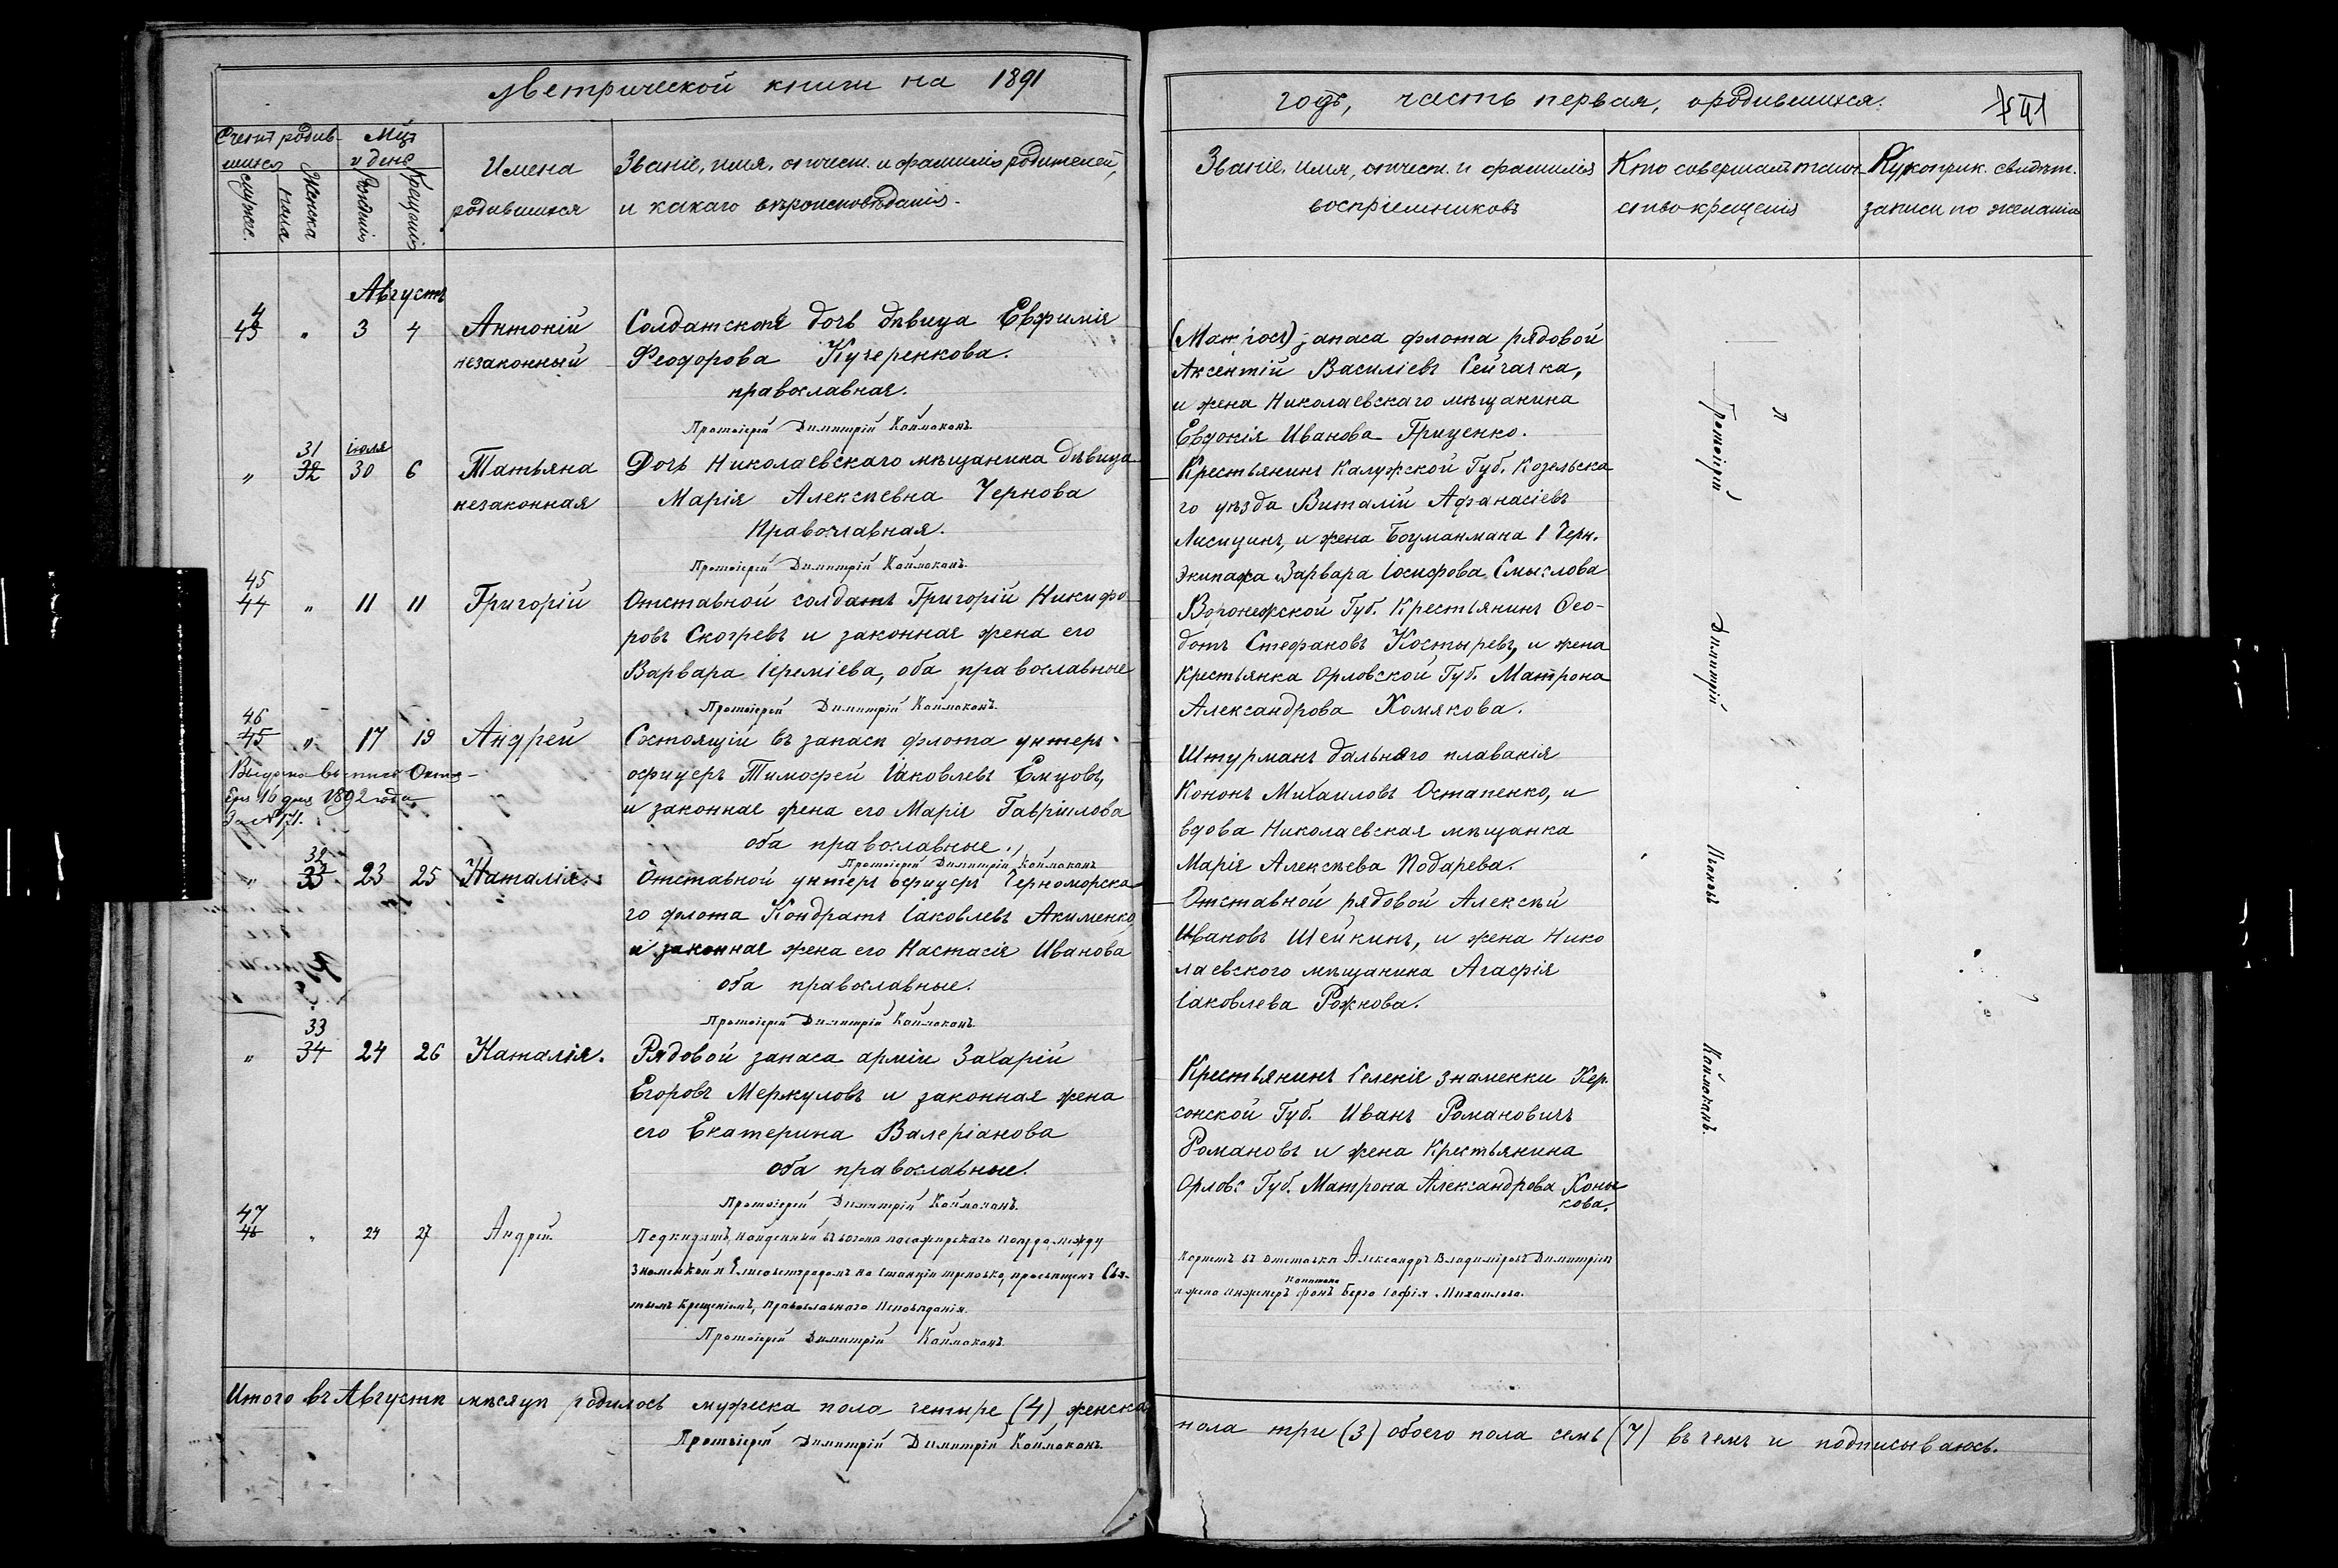 Метрической книги на 1891
Счетъ родив-
шихся
Мцъ
и день
мужс.
пола
Женска
Рожденія
Крещенія
Имена
родившихся
Званіе, имя, отчест. и фамилія родителей,
и какаго вѣроисповѣданія.
Августъ
43 " 3 4 Антоній
незаконный
Солдатская дочь дѣвица Евфимія
Феодорова Кучеренкова.
православная.
Протоіерей Димитрій Каймаканъ.
31 іюля
" 32 30 6 Татьяна
незаконная
Дочь Николаевскаго мѣщанина дѣвица
Марія Алексѣевна Чернова
Православная.
Протоіерей Димитрій Каймаканъ.
45
44 " 11 11 Григорій
Отставной солдатъ Григорій Никифо-
ровъ Скогревъ и законная жена его
Варвара Іереміева, оба православные
Протоіерей Димитрій Каймаканъ.
46
45 " 17 19 Андрей
Выдана выпись Октя-
бря 16 дня 1892 года
За № 171.
Состоящій въ запасѣ флота унтеръ-
офицеръ Тимофей Іаковлевъ Емцовъ,
и законная жена его Марія Гавріилова
оба православные.
Протоіерей Димитрій Каймаканъ
32
" 33 23 25 Наталія.
Отставной унтеръ офицеръ Черноморска-
го флота Кондратъ Іаковлевъ Акименко,
и законная жена его Настасія Иванова
оба православные.
Протоіерей Димитрій Каймаканъ.
33
" 34 24 26 Наталія.
Рядовой запаса арміи Захарій
Егоровъ Меркуловъ и законная жена
его Екатерина Валеріанова
оба православные.
Протоіерей Димитрій Каймаканъ.
47
46 " 24 27 Андрей.
Подкидятъ, найденный въ вагонѣ пасажирскаго поѣзда между
Знаменкой и Елисаветградомъ на станціи Треповко, просвященъ Свя-
тымъ Крещеніемъ, Православнаго Исповѣданія.
Протоіерей Димитрій Каймаканъ.
Итого въ Августѣ мѣсяцѣ родилось мужеска пола четыре (4) женска
Протоіерей Димитрій Димитрій Каймаканъ.
годъ, часть первая, о родившихся.
Званіе, имя, отчест. и фамилія
воспріемниковъ
Кто совершалъ таин-
ство крещенія
Рукоприк. свидѣт.
записи по желанію
(Матросъ) запаса флота рядовой
Аксентій Василіевъ Сейчачка,
и жена Николаевскаго мѣщанина
Евдокія Иванова Гриценко.
Крестьянинъ Калужской Губ. Козельска
го уѣзда Виталій Афанасіевъ
Лисицинъ, и жена Боцманмана 1 Черн.
Экипажа Варвара Іосифова Смыслова
Воронежской Губ. Крестьянинъ Ѳео-
дотъ Стефановъ Костыревъ, и жена
Крестьянка Орловской Губ. Матрона
Александрова Хомякова.
Штурманъ дальняго плаванія
Кононъ Михаиловъ Остапенко, и
вдова Николаевская мѣщанка
Марія Алексѣева Подарева.
Отставной рядовой Алексѣй
Ивановъ Шейкинъ, и жена Нико
лаевского мѣщанина Агафія
Іаковлева Рожнова.
Крестьянинъ Селенія Знаменки Хер.
сонской Губ. Иванъ Романовичъ
Романовъ и жена Крестьянина
Орловс Губ. Матрона Александрова Хомя
кова.
Корнетъ въ отставкѣ Александръ Владиміровъ Димитріевъ
Капитана
и жена инженеръ фонъ Берга Софія Михаилова.
Протоіерей Димитрій Каймаканъ.
пола три (3) обоего пола семь (7) въ чемъ и подписываюсь.